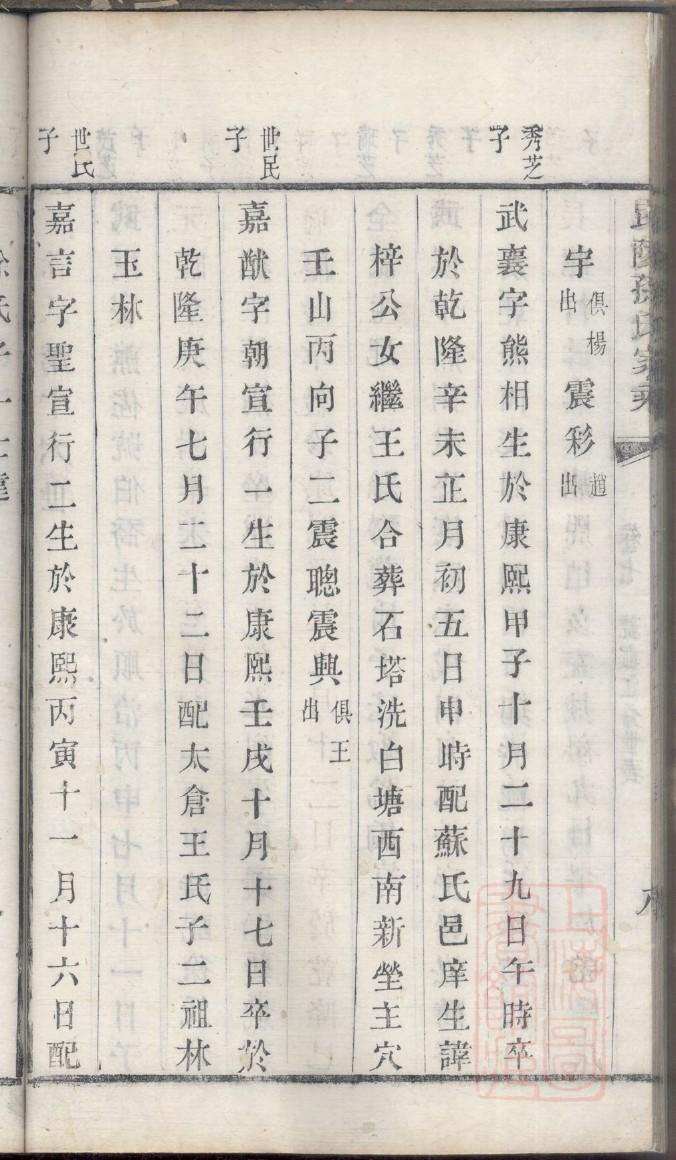 昆陵孫氏家乘
宇俱楊出震彩趙出
秀芝子
武襄字熊相生於康熙甲子十月二十九日午時卒
於乾隆辛未正月初五日申時配蘇氏邑庠生諱
梓公女繼王氏合葬石塔洗白塘西南新塋主穴
壬山丙向子二震聰震興俱王出
世民子
嘉猷字朝宣行一生於康熙壬戌十月十七日卒於
乾隆庚午七月二十二日配太倉王氏子二祖林
玉林
世民子
嘉言字聖宣行二生於康熙丙寅十一月十六日配